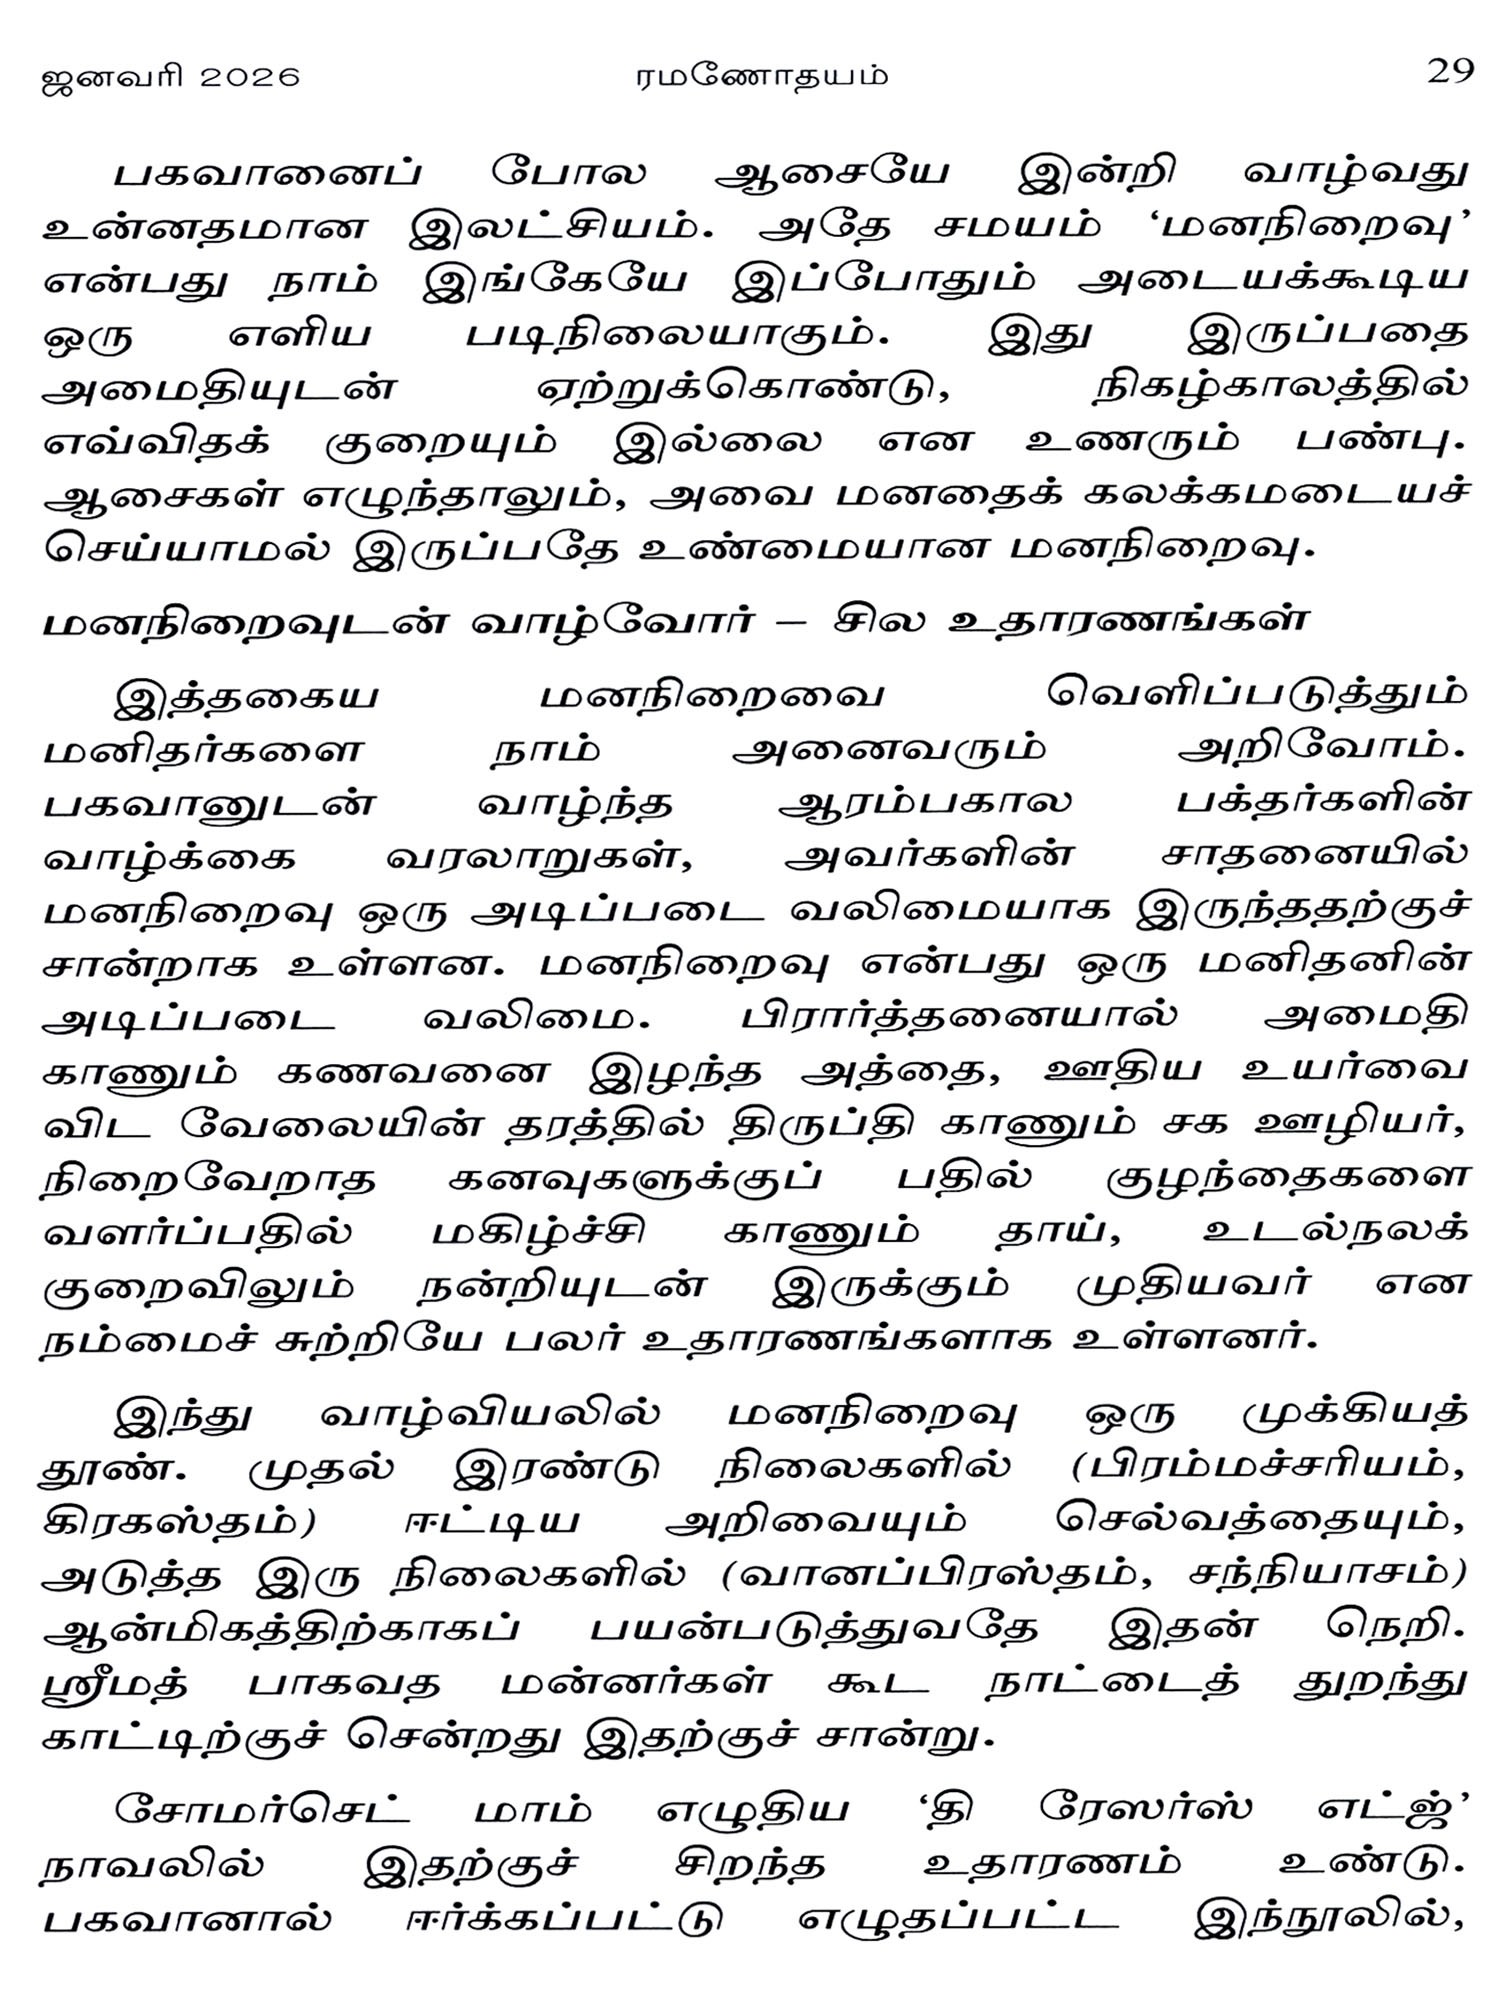 ஜனவரி 2026 ரமணோதயம் 29
பகவானைப் போல ஆசையே இன்றி வாழ்வது
உன்னதமான இலட்சியம். அதே சமயம் ‘மனநிறைவு’
என்பது நாம் இங்கேயே இப்போதும் அடையக்கூடிய
ஒரு எளிய படிநிலையாகும். இது இருப்பதை
அமைதியுடன் ஏற்றுக்கொண்டு, நிகழ்காலத்தில்
எவ்விதக் குறையும் இல்லை என உணரும் பண்பு.
ஆசைகள் எழுந்தாலும், அவை மனதைக் கலக்கமடையச்
செய்யாமல் இருப்பதே உண்மையான மனநிறைவு.
மனநிறைவுடன் வாழ்வோர் – சில உதாரணங்கள்
இத்தகைய மனநிறைவை வெளிப்படுத்தும்
மனிதர்களை நாம் அனைவரும் அறிவோம்.
பகவானுடன் வாழ்ந்த ஆரம்பகால பக்தர்களின்
வாழ்க்கை வரலாறுகள், அவர்களின் சாதனையில்
மனநிறைவு ஒரு அடிப்படை வலிமையாக இருந்ததற்குச்
சான்றாக உள்ளன. மனநிறைவு என்பது ஒரு மனிதனின்
அடிப்படை வலிமை. பிரார்த்தனையால் அமைதி
காணும் கணவனை இழந்த அத்தை, ஊதிய உயர்வை
விட வேலையின் தரத்தில் திருப்தி காணும் சக ஊழியர்,
நிறைவேறாத கனவுகளுக்குப் பதில் குழந்தைகளை
வளர்ப்பதில் மகிழ்ச்சி காணும் தாய், உடல்நலக்
குறைவிலும் நன்றியுடன் இருக்கும் முதியவர் என
நம்மைச் சுற்றியே பலர் உதாரணங்களாக உள்ளனர்.
இந்து வாழ்வியலில் மனநிறைவு ஒரு முக்கியத்
தூண். முதல் இரண்டு நிலைகளில் (பிரம்மச்சரியம்,
கிரகஸ்தம்) ஈட்டிய அறிவையும் செல்வத்தையும்,
அடுத்த இரு நிலைகளில் (வானப்பிரஸ்தம், சந்நியாசம்)
ஆன்மிகத்திற்காகப் பயன்படுத்துவதே இதன் நெறி.
ஸ்ரீமத் பாகவத மன்னர்கள் கூட நாட்டைத் துறந்து
காட்டிற்குச் சென்றது இதற்குச் சான்று.
சோமர்செட் மாம் எழுதிய ‘தி ரேஸர்ஸ் எட்ஜ்’
நாவலில் இதற்குச் சிறந்த உதாரணம் உண்டு.
பகவானால் ஈர்க்கப்பட்டு எழுதப்பட்ட இந்நூலில்,